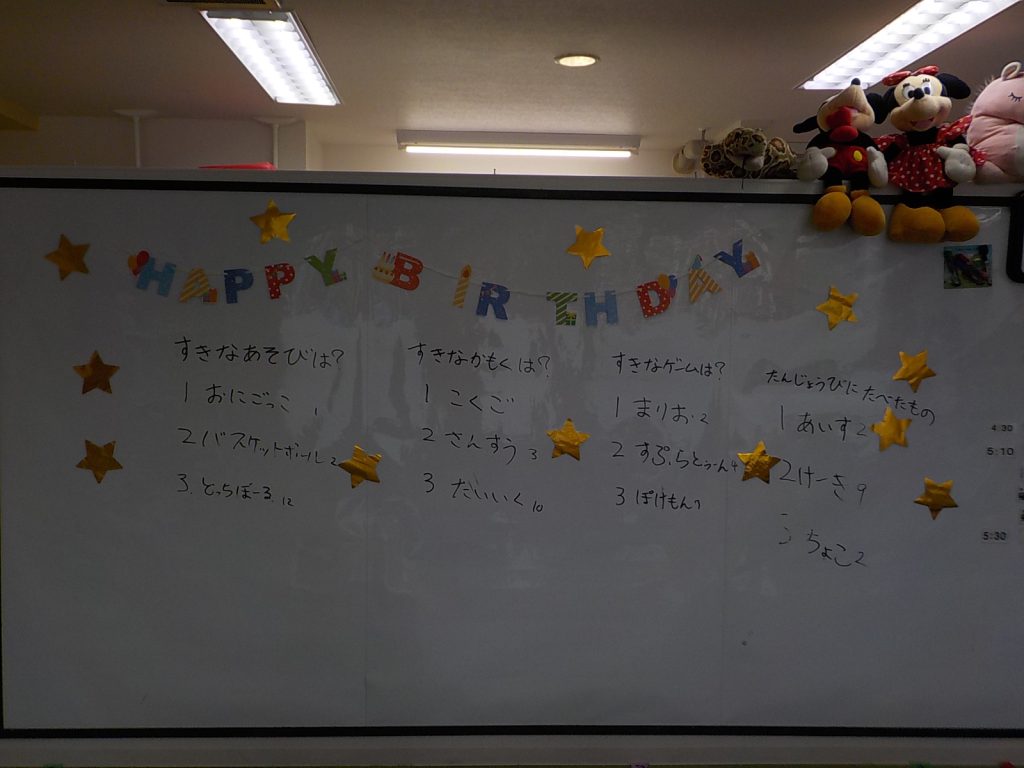 HAPPY BIRTHDAY
すきなあそびは?
1 おにごっこ 1
2 バスケットボール 2
3. どっちぼーる. 12
すきなかもくは?
1 こくご
2 さんすう 3
3 たいいく 10
すきなゲームは?
1 まりお 2
2 すぷらとぅーん 4
3 ぽけもん 7
たんじょうびにたべたもの
1 あいす 2
2 けーき 9
3 ちょこ 2
4 30
5:10
5:30